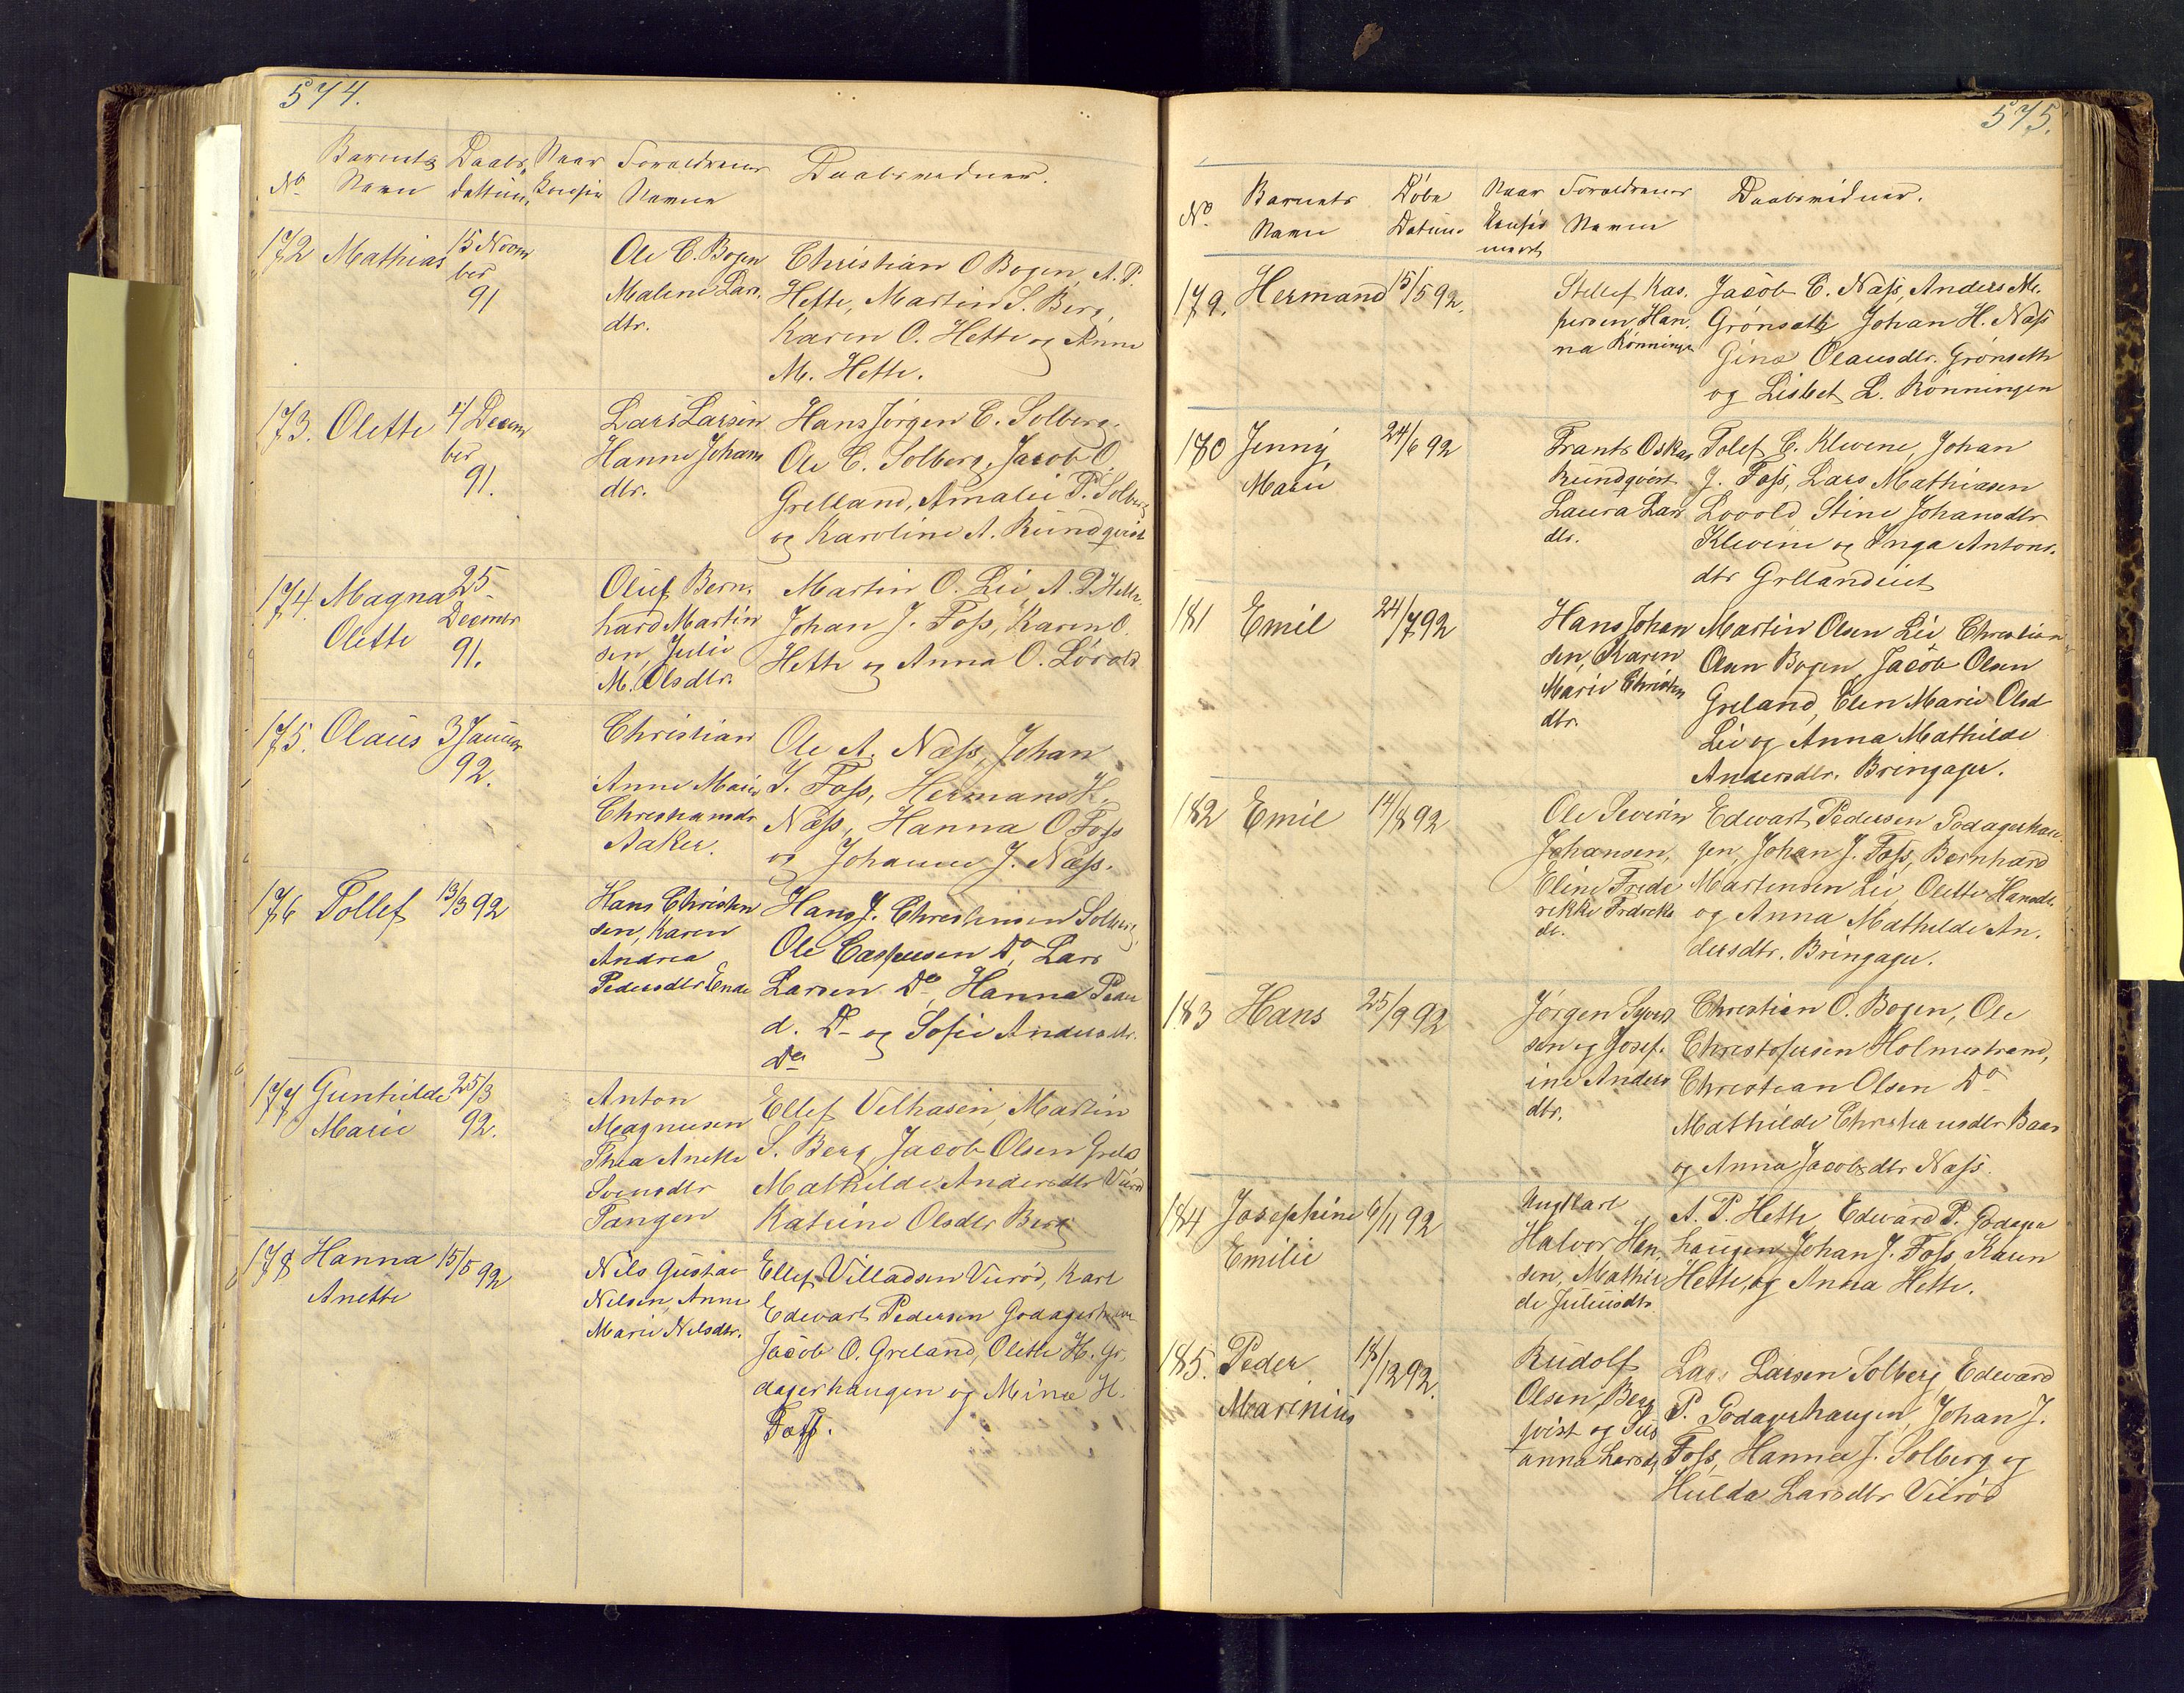 574.
No Barnets Navn Daabs dattum. Naar Konfir Foraldrenes Navne Daabsvidner.
172 Mathias 15 Novem ber 91 Ole C. Bogen Malene Lars. dtr.
Christian O Bogen, A. P.
Hette, Martin S. Berg,
Karen O. Hette og Anne
M. Hette.
173. Olette 4 Decem ber 91. Lars Larsen Hanne Johans dtr.
Hans Jørgen C. Solberg.
Ole C. Solberg, Jacob O.
Grelland, Amalie P. Solberg
og Karoline A. Rundqvist
174. Magna Olette 25 Decembr 91. Oluf Bern. hard Martin sen, Julie M. Olsdtr.
Martin O. Lie, A. P. Hette.
Johan J. Foss, Karen O.
Hette og Anna O. Løvold
175. Olaus 3 Januar 92. Christian Anne Marie Christiansdr Aaker.
Ole A. Næss, Johan
J. Foss, Hermans H.
Næss, Hanna O Foss
og Johanne J. Næss.
176 Tollef 13/3 92 Hans Christen sen, Karen Andrea Pedersdtr Ende
Hans J. Christensen Solberg
Ole Caspersen Do, Lars
Larsen Do, Hanna Peder
d. D- og Sofie Andersdtr.
Do
177 Gunhilde Marie 25/3 92. Anton Magnusen Thea Anette Svensdtr Tangen
Ellef Velhasen, Martin
S. Berg, Jacob Olsen Grela
Mathilde Andersdtr Viirød
Katrine Olsdtr Berg
178 Hanna Anette 15/5 92 Nils Gustav Nelsen, Anne Marie Nilsdtr.
Ellef Villadsen Viirød, Karl
Edevart Pedersen Godagerhaug
Jacob O. Greland, Olette H. Go
dagerhaugen og Mina H.
Foss.
575.
No Barnets Navn Døbe Datum Naar Konfir meert Foraldrenes Navne Daabsvidner.
179. Hermand 15/5 92. Stellef Kas. persen, Han. na Rønningen
Jacob C. Næss, Anders M.
Grønseth Johan H. Næss
Gina Olausdtr. Grønseth
og Lisbet L. Rønningen
180 Jenny Marie 24/6 92 Frants Oskar Rundqvist Laura Lars dtr.
Tolef C. Klevene, Johan
J. Foss, Lars Mathiasen
Lovold Stine Johansdtr
Klevene og Inga Antons.
dtr Grllandeiet
181 Emil 24/7 92 Hans Johan sen, Karen Marie Christen dtr.
Martin Olsen Lie Christian
Olsen Bogen, Jacob Olsen
Greland, Elen Marie Olsd
Lie og Anna Mathilde
Andersdtr. Bringager.
182 Emil 14/8 92 Ole Severin Johansen, Eline Frede rikke Fredreks dr.
Edevart Pedersen Godagerhau
gen, Johan J. Foss, Bernhard
Martensen Lie, Olette Hansdtr
og Anna Mathilde An.
dersdtr. Bringager.
183 Hans 25/9 92 Jørgen Syvert sen og Josef. ine Anders dtr.
Christian O. Bogen, Ole
Christofersen Holmestrand,
Christian Olsen Do
Mathilde Christiansdtr Baas
og Anna Jacobsdtr Næss.
184 Josephine Emilie 6/11 92 Ungkarl Halvor Han. sen, Mathil de Juliusdtr
A. P. Hette, Edevard P. Godager
haugen Johan J. Foss, Karen
Hette, og Anna Hette.
185. Peder Marinius 18/12 92. Rudolf Olsen Berg qvist og Sus anna Larsdtr
Lars Larsen Solberg, Edevard
P. Godagerhaugen, Johan J.
Foss, Hanna J. Solberg og
Hulda Larsdtr Viirød